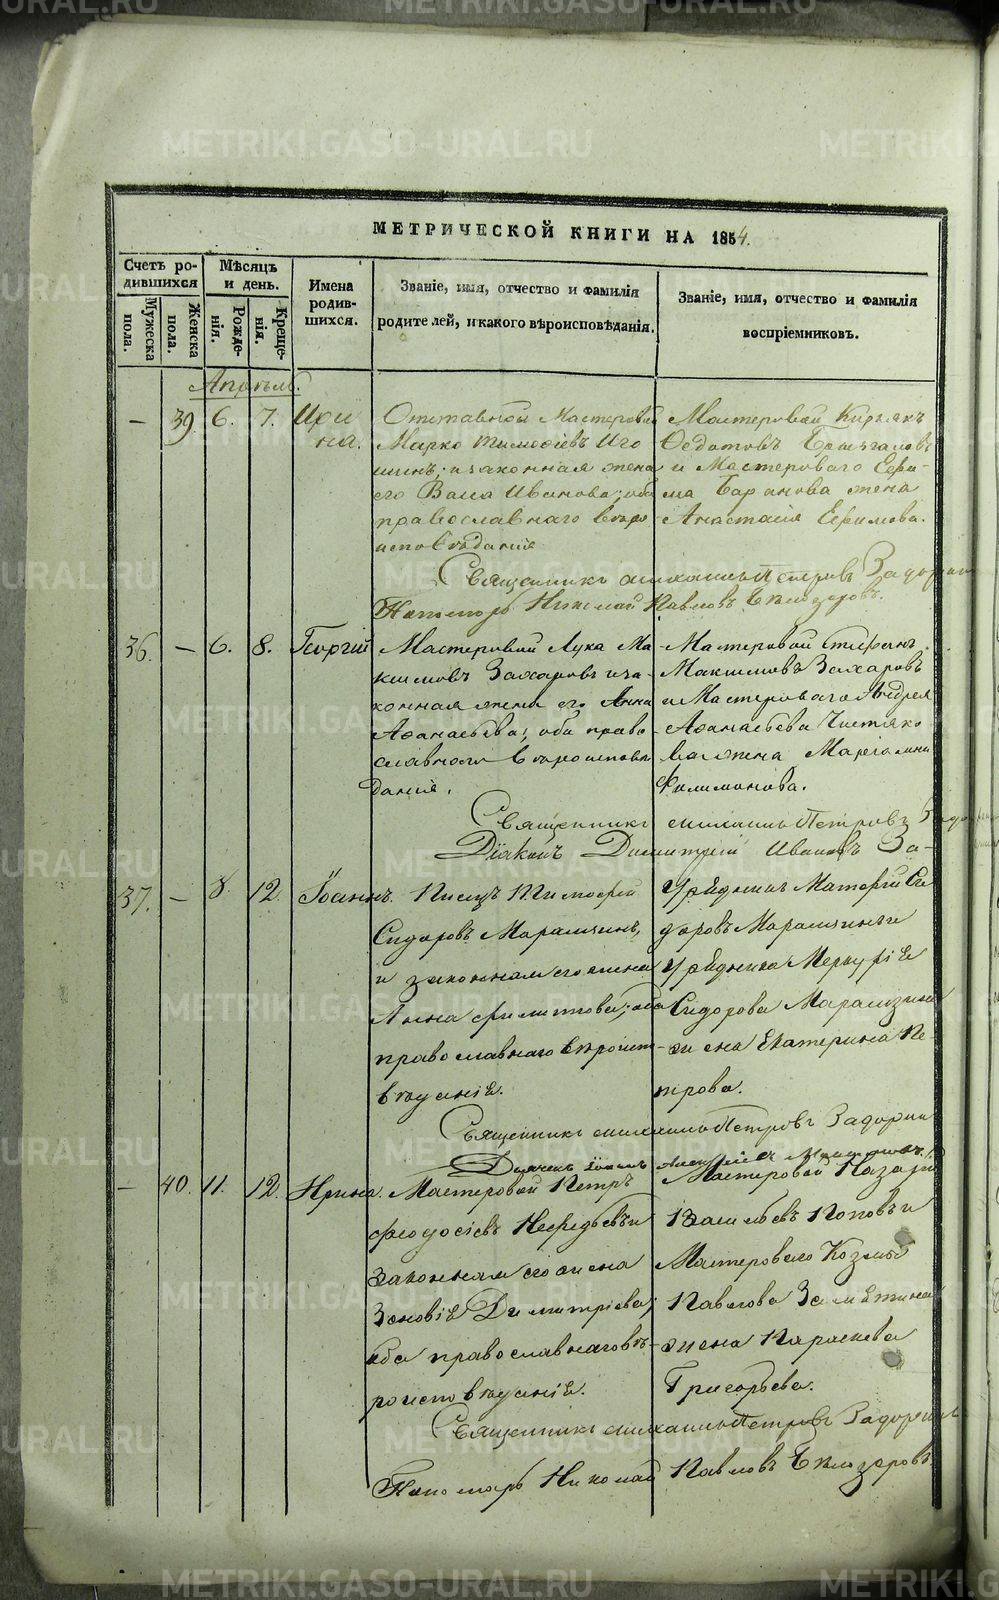 МЕТРИЧЕСКОЙ КНИГИ НА 1854.
Счетъ ро-
дившихся
Мѣсяцъ
и день.
Мужеска
пола.
Женска
пола.
Рожде-
нія.
Креще-
нія.
Имена
родив-
шихся.
Званіе, имя, отчество и фамилія
родителей, и какого вѣроисповѣданія.
Званіе, имя, отчество и фамилія
воспріемниковъ.
Апрѣль.
— 39. 6. 7. Ири
на.
Отставной Мастеровой
Марко Тимоѳіевъ Иго
шинъ, и законная жена
его Васса Иванова; оба
православнаго вѣро
исповѣданія
Мастеровой Кирьякъ
Ѳедотовъ
и Мастероваго Ефи-
ма Баранова жена
Анастасія Ефимова.
Священникъ Михаилъ Петровъ Задорин
Пономарь Николай Павловъ Бѣлозеровъ.
36. — 6. 8. Георгій
Мастеровой Лука Ма
ксимовъ Захаровъ и за-
конная жена его Анна
Аѳанасьева; оба право
славнаго вѣроисповѣ
данія.
Мастеровой Стефанъ
Максимовъ Захаровъ
и Мастероваго Андрея
Аѳанасьева Чистяко
ва жена Марія
Филимонова.
Священникъ Михаилъ Петровъ Задо
Діаконъ Димитрій Ивановъ За-
37. — 8. 12. Іоаннъ.
Писецъ Тимоѳей
Сидоровъ Марамзинъ,
и законная его жена
Анна Филиппова; оба
православнаго вѣроисп-
вѣданіе.
Урядникъ Матѳей Си
доровъ Марамзинъ и
Урядника Меркуріе
Сидорова Марамзина
жена Екатерина Пе-
трова.
Священникъ Михаилъ Петровъ Задорин
Дьячекъ
— 40. 11. 12. Ирина.
Мастеровой Петръ
Феодосіевъ Нефедьевъ и
Законная его жена
Зеновіе Димитріева;
оба православнаго вѣ-
роисповѣданіе.
Мастеровой Назарій
Васильевъ Поповъ и
Мастероваго Козмы
Павлова Замѣтина
жена Параскева
Григорьева.
Священникъ Михаилъ Петровъ Задорин
Пономарь Николай Павловъ Бѣлозеровъ
METRIKI.GASO-URAL.RU